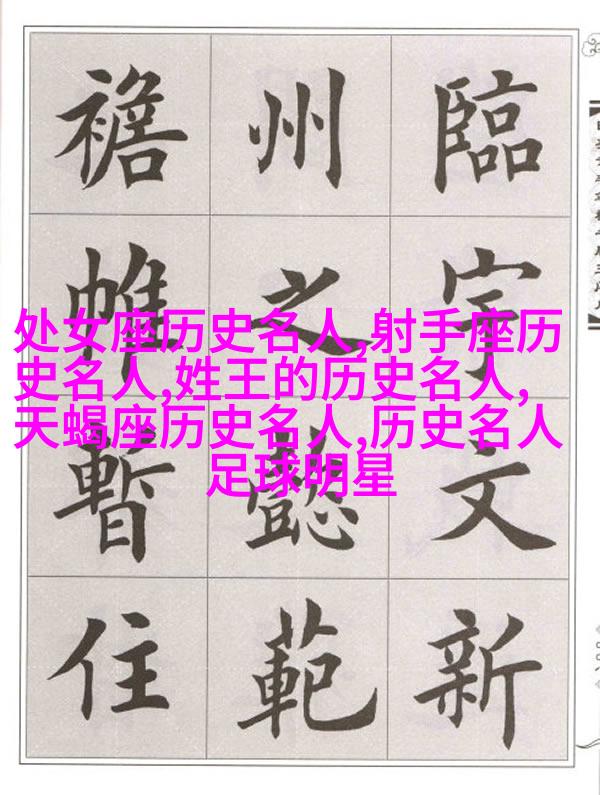 臨宇文新
州之懿範
襜帷暫住
处女座历史名人,射手座历
史名人,姓王的历史名人,
天蝎座历史名人,历史名人
足球明星